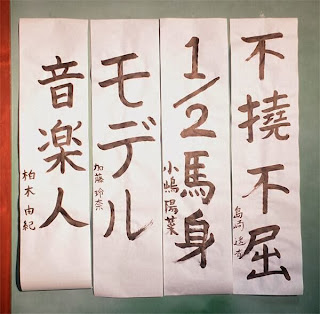 不撓不屈
島崎遥香
1/2馬身
小嶋陽菜
モデル
加藤玲奈
音楽人
柏木由紀